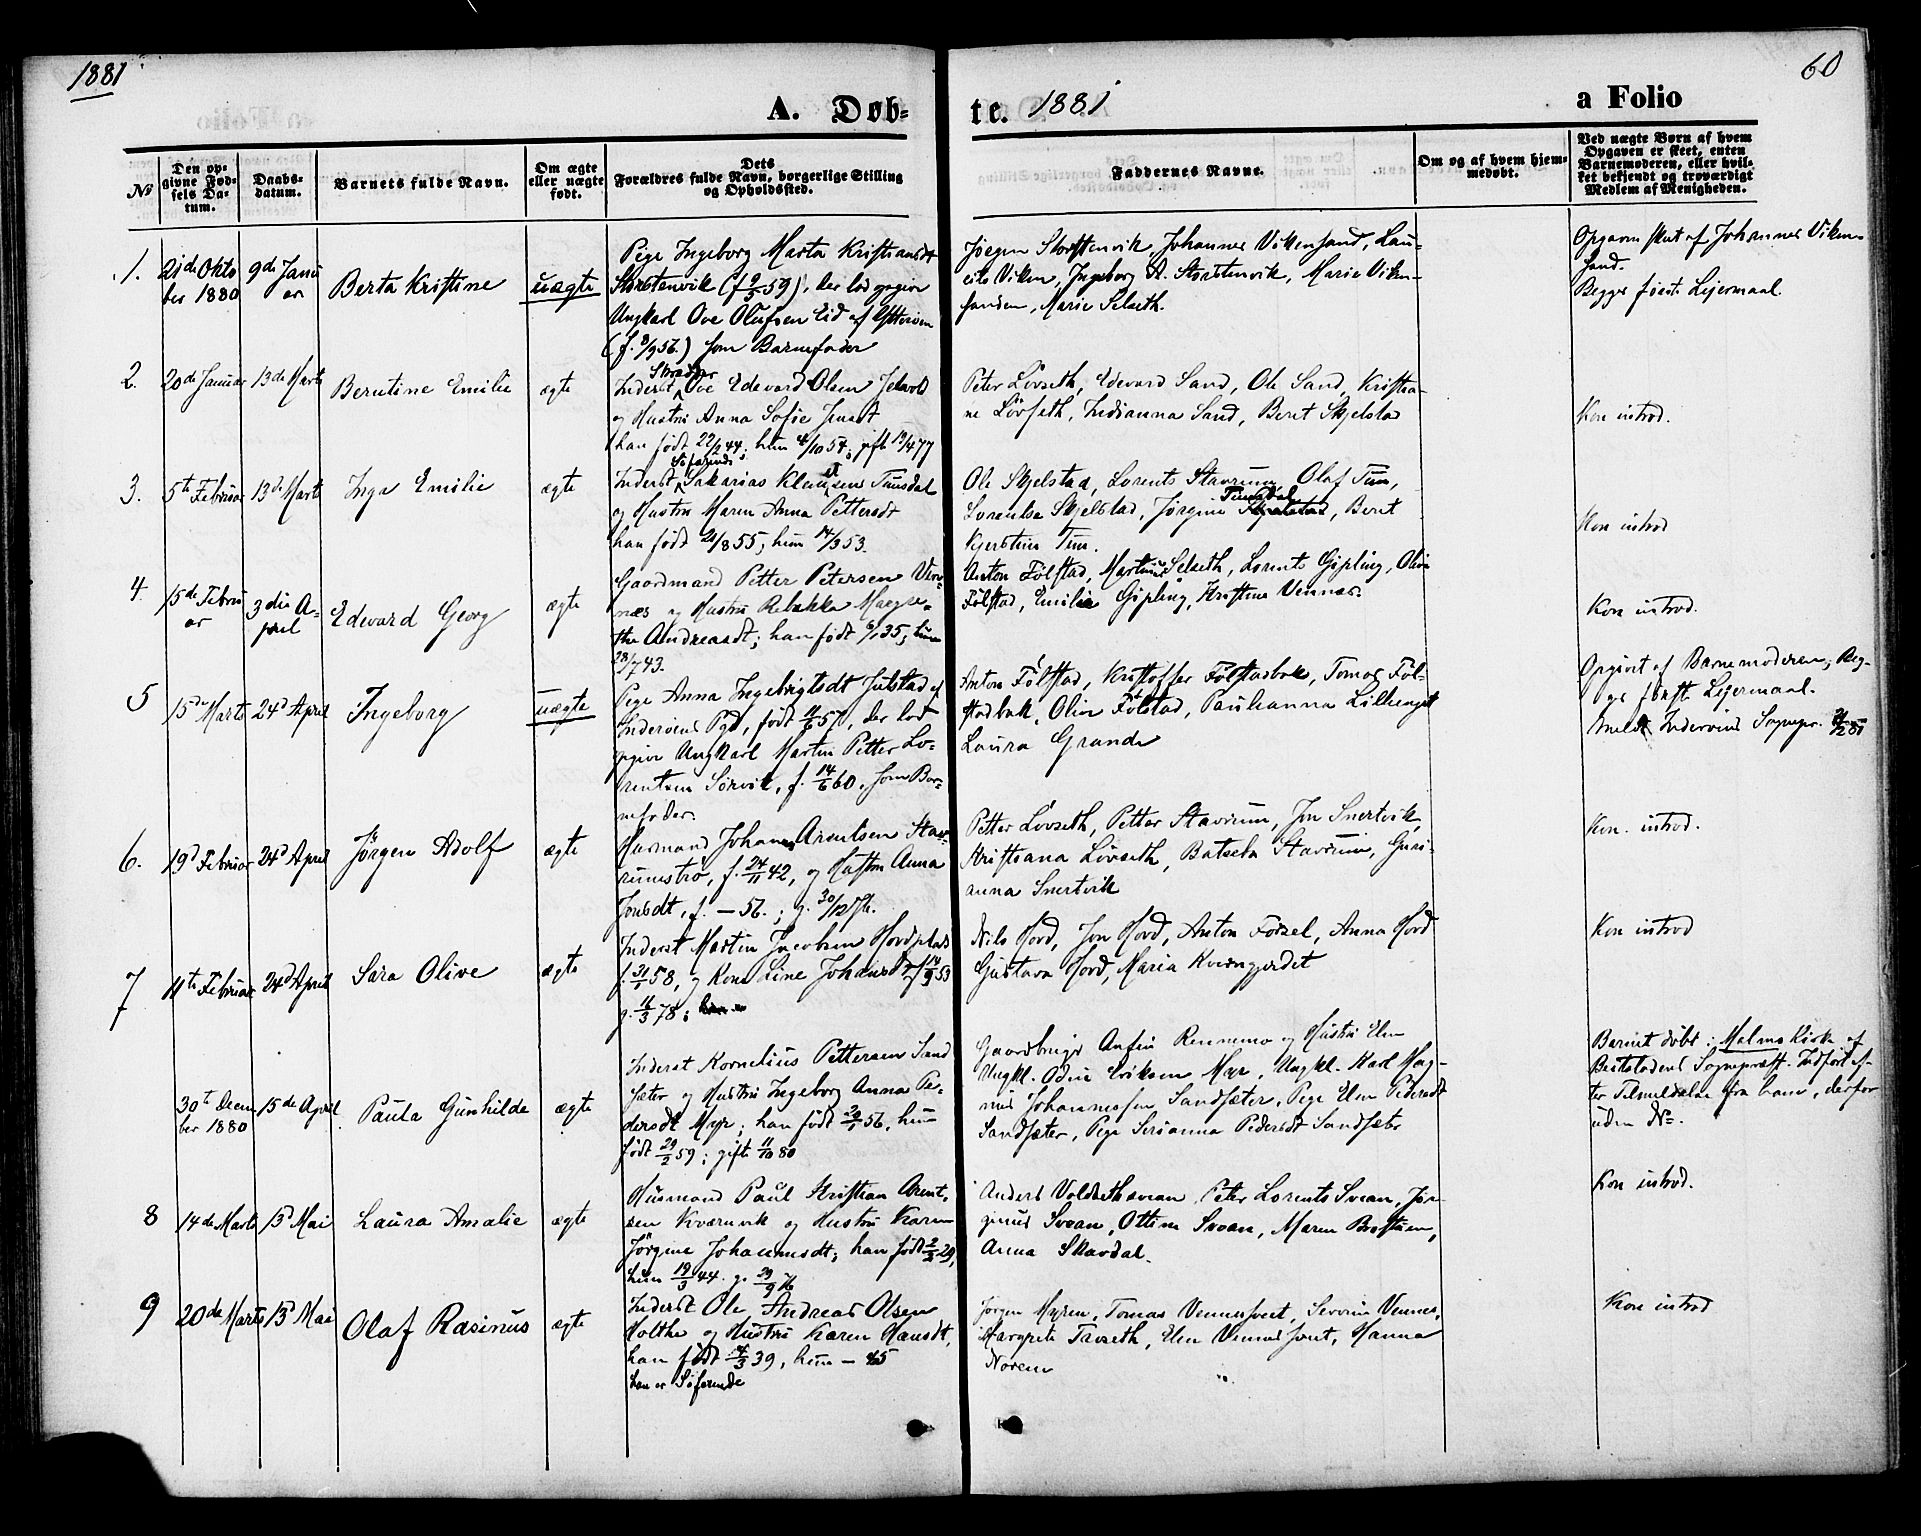 1881
60
A. Døb-
te. 1881
a Folio
No
Den op-
givne Fød-
sels Da-
tum.
Daabs-
datum.
Barnets fulde Navn.
Om ægte
eller uægte
født.
Dets
Forældres fulde Navn, borgerlige Stilling
og Opholdssted.
Faddernes Navne.
Om og af hvem hjem-
medøbt.
Ved uægte Børn af hvem
Opgaven er skeet, enten
Barnemoderen, eller hvil-
ket bekjendt og troværdigt
Medlem af Menigheden.
1.
21de Okto
ber 1880
9de Janu
ar
Berta Kristine
uægte
Pige Ingeborg Marta Kristiansdt
Storstenvik (f 59), der lod opgive
Ungkarl Ove Olufsen Eid af Ytterøen
(f. 8/9 56.) som Barnefader
Jørgen Storstenvik, Johannes Vikensand, Lau-
rits Viken, Ingeborg A. Storstenvik, Marie Viken-
sanden, Marie Selseth.
Opgaven skeet af Johannes Viken-
sand.
Begges første Lejermaal.
2.
20de Januar
13de Marts
Berntine Emilie
ægte
Skrædder
Inderst Ove Edevard Olsen
og Hustru Anna Sofie
han født 22/2 44; hun 4/10 54; gift 19/4 77
Peter Løvseth, Edevard Sand, Ole Sand, Kristia-
ne Løvseth, Indianna Sand, Beret Skjelstad
Kon introd.
3.
5te Februar
13de Marts
Inga Emilie
ægte
Søfarende
Inderst Sakarias Klausen Tunsdal
og Hustru Maren Anna Pettersdt
han født 21/8 55, hun 14/3 53.
Ole Skjelstad, Lorents Stavrum, Olaf Tun,
Lorentse Skjelstad, Jørgine Tunsdal, Beret
Kjerstine Tun.
Kon introd
4.
15de Febru
ar
3die A-
pril
Edevard Georg
ægte
Gaardmand Petter Petersen Ven-
næs og Hustru Rebekka Margre-
the Andreasdt; han født 6/1 35, hun
28/7 43.
Anton Følstad, Martinus Selseth, Lorents Gipling, Olin
Følstad, Emilie Gipling, Kristine Vennæs.
Kon introd.
5
15de Marts
24d April
Ingeborg
uægte
Pige Anna Ingebrigtsdt Julstad af
Inderøens Pgd, født 11/6 57, der lod
opgive Ungkarl Martin Petter Lo-
rentsen Sørvik, f. 14/6 60, som Bar-
nefader.
Anton Følstad, Kristoffer Følstadbak, Tomas Føl-
stadbak, Olin Følstad, Paulianna Lillenget
Laura Grande
Opgivet af Barnemoderen, Beg-
ges første Lejermaal.
Meldt Inderøens Sognepr.
6.
19d Februar
24d April
Jørgen Adolf
ægte
Husmand Johan Arntsen Stav-
runestrø, f. 24/11 42, og Hustru Anna
Jonsdt, f. – 56.; g. 30/12 76.
Petter Løvseth, Petter Stavrum, Jon Snertvik,
Kristiana Løvseth, Batseba Stavrum, Guri-
anna Snertvik
Kon. introd.
7
11te Februar
24d April
Sara Olive
ægte
Inderst Martin Jacobsen Hordplads
f. 31/1 58, og Kone Line Johansdt, f 14/9 53
g. 11/3 78;
Nils Hord, Jon Hord, Anton Forsel, Anna Hord
Gustava Hord, Maria Kverngjerdet
Kon introd
30te Decem
ber 1880
15de April
Paula Gunhilde
ægte
Inderst Kornelius Pettersen Sand
sæter og Hustru Ingeborg Anna Pe-
dersdt Myr; han født 56, hun
født 29/2 59; gift 11/10 80
Gaardbruger Anfin Rennemo og Hustru Elen
Ungkl. Odin Eriksen Myr, Ungkl. Karl Mag-
nus Johannessen Sandsæter, Pige Elen Pedersdt
Sandsæter, Pige Serianna Pedersdt Sandsæter
Barnet døbt i Malmo Kirke af
Beitstadens Sognepræst. Indført ef-
ter Tilmeldelse fra ham, derfor
uden No.
8
14de Marts
15d Mai
Laura Amalie
ægte
Husmand Paul Kristian Arent-
sen Kværnvik og Hustru Karen
Jørgine Johannesdt; han født 29,
hun 19/3 44. g. 29/9 76
Anders Voldseth, Peter Lorents Svean, Jør-
ginus Svean, Ottine Svean, Maren Brostuen,
Anna Skavdal.
Kon introd.
9
20de Marts
15d Mai
Olaf Rasinus
ægte
Inderst Ole Andreas Olsen
Holthe og Hustru Karen Hansdt,
han født 4/3 39, hun – 45
han er Søfarende
Jørgen Myren, Tomas Vennestrøet, Severin Vennes,
Margrete Troseth, Elen Vennestrøet, Hanna
Noren
Kon introd